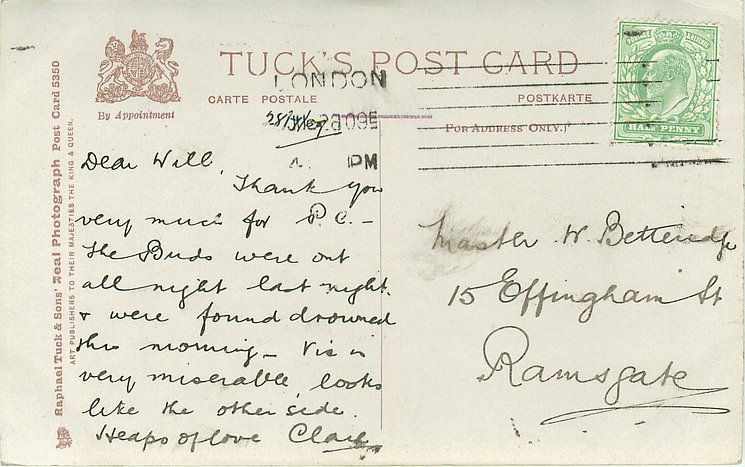 TUCK'S POST CARD
By Appointment
CARTE POSTALE
POSTKARTE
(FOR ADDRESS ONLY.)
LONDON
PM
HALF PENNY
Raphael Tuck & Sons' Real Photograph Post Card 5350
ART PUBLISHERS TO THEIR MAJESTIES THE KING & QUEEN.
Dear Will,
Thank you
very much for P.C. –
The Buds were out
all night last night.
& were found drowned
this morning – Vis is
very miserable, looks
like the other side.
Heaps of love
Master W. Betteridge
15 Effingham St
Ramsgate